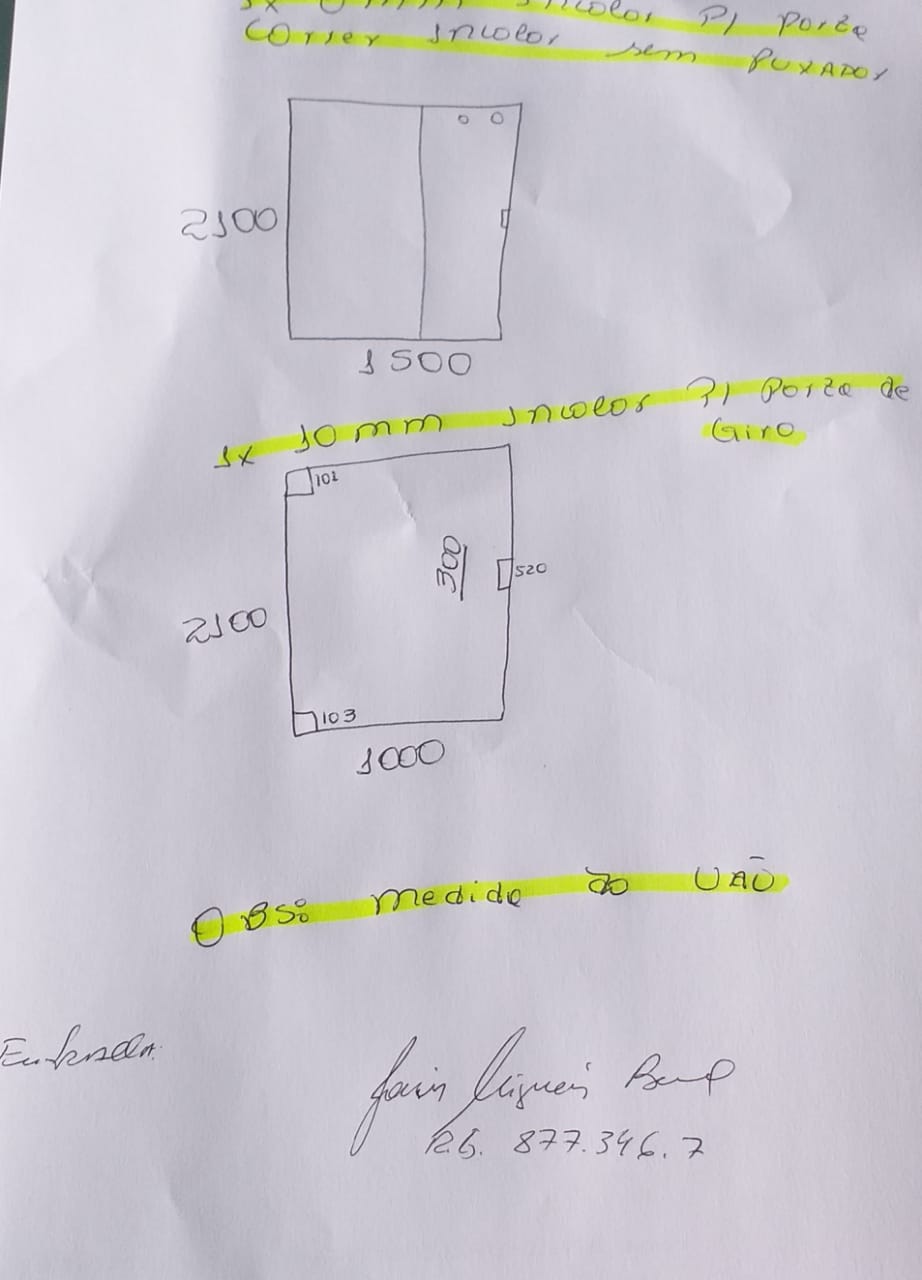 Incolor P/ Porta
Correr Incolor sem PUXADOR
2100
1500
1x 10mm Incolor P/ Porta de
Giro
101
300
520
2100
103
1000
OBS: medida do VÃO
R.G. 877.346.7